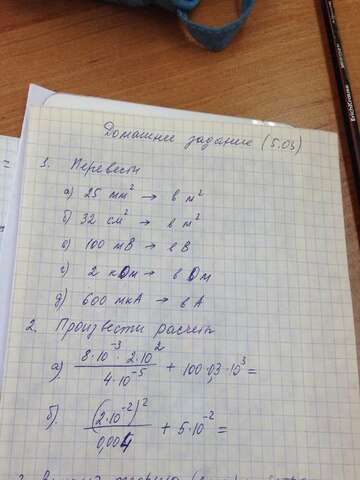 Домашнее задание (5.03)
1. Перевести
а) 25 мм² → в м²
б) 32 см² → в м²
в) 100 мВ → в В
г) 2 кОм → в Ом
д) 600 мкА → в А
2. Произвести расчеты
а) (8·10⁻³ · 2·10²)/(4·10⁻⁵) + 100·0,3·10³ =
б) (2·10⁻²)²/0,004 + 5·10⁻² =